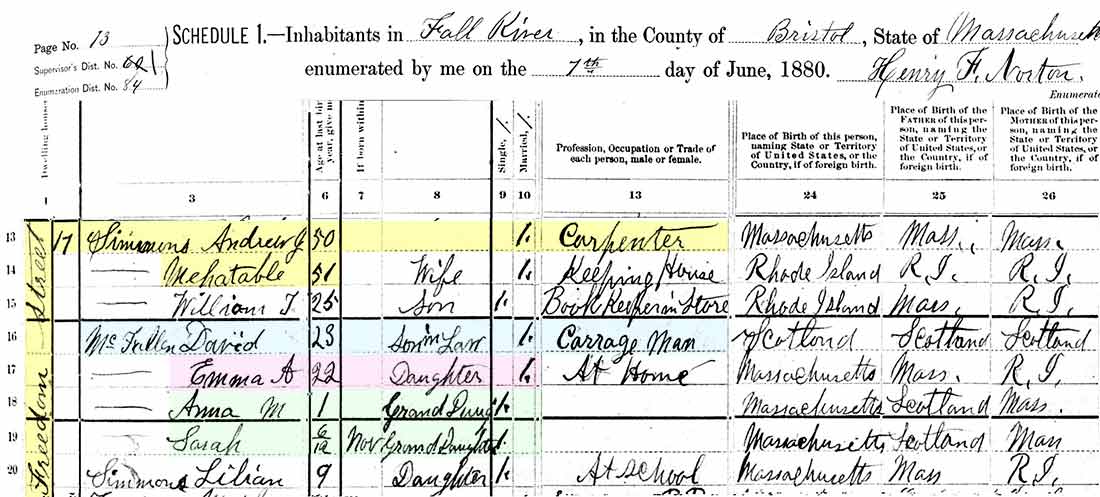 Page No. 13
Supervisor's Dist. No. 621
Enumeration Dist. No. 84
SCHEDULE 1.—Inhabitants in Fall River, in the County of Bristol, State of Massachuse
enumerated by me on the 7th day of June, 1880. Henry F. Norton.
Enumerato
Dwelling house
Age at last bir year, give m
If born within
Single, /.
Married, /.
Profession, Occupation or Trade of each person, male or female.
Place of Birth of this person, naming State or Territory of United States, or the Country, if of foreign birth.
Place of Birth of the FATHER of this person, naming the State or Territory of United States, or the Country, if of foreign birth.
Place of Birth of the MOTHER of this person, naming the State or Territory of United States, or the Country, if of foreign birth.
1 3 6 7 8 9 10 13 24 25 26
Freedom Street
13 17 Simmons Andrew J 50 /. Carpenter Massachusetts Mass. Mass.
14 — Mehatable 51 Wife /. Keeping House Rhode Island R.I. R.I.
15 — William T. 25 Son /. Book Keeper in Store Rhode Island Mass. R.I.
16 McFallen David 23 Son in Law /. Carrage Man Scotland Scotland Scotland
17 — Emma A 22 Daughter /. At Home Massachusetts Mass. R.I.
18 — Anna M 1 Grand Daug /. Massachusetts Scotland Mass.
19 Sarah 6/12 Nov Grand Daughter /. Massachusetts Scotland Mass
20 Simmons Lilian 9 Daughter /. At School Massachusetts Mass R.I.